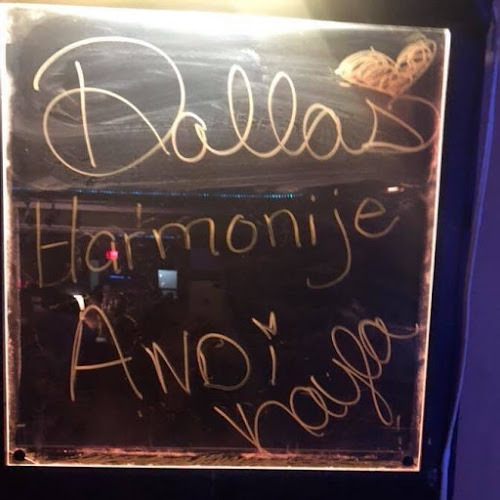 Dallas
Harmonije
ANDi
Kayfa